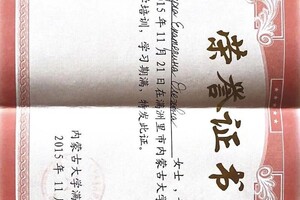 荣誉证书
Екатерина Олеговна 女士，
015年11月21日在满洲里市内蒙古大
学培训，学习期满，特发此证。
内蒙古大学满
2015年11月